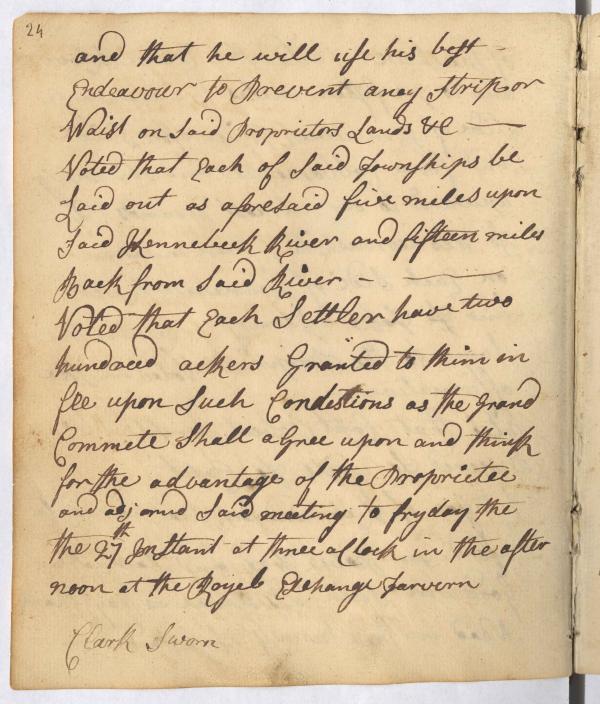 24
and that he will use his best -
Endeavour to Prevent aney Strip or
Waist on Said Proprietors Lands &c —
Voted that Each of Said Townships be
Laid out as aforesaid five miles upon
Said Kennebeck River and fifteen miles
Back from Said River - —
Voted that Each Settler have two
hundred ackers Granted to them in
fee upon Such Condestions as the Grand
Commete Shall aGree upon and think
for the advantage of the Proprietee
and adjornd Said meeting to fryday the
the 27th Instant at three a Clock in the after
noon at the Royel Exchange Tarvern
Clark Sworn